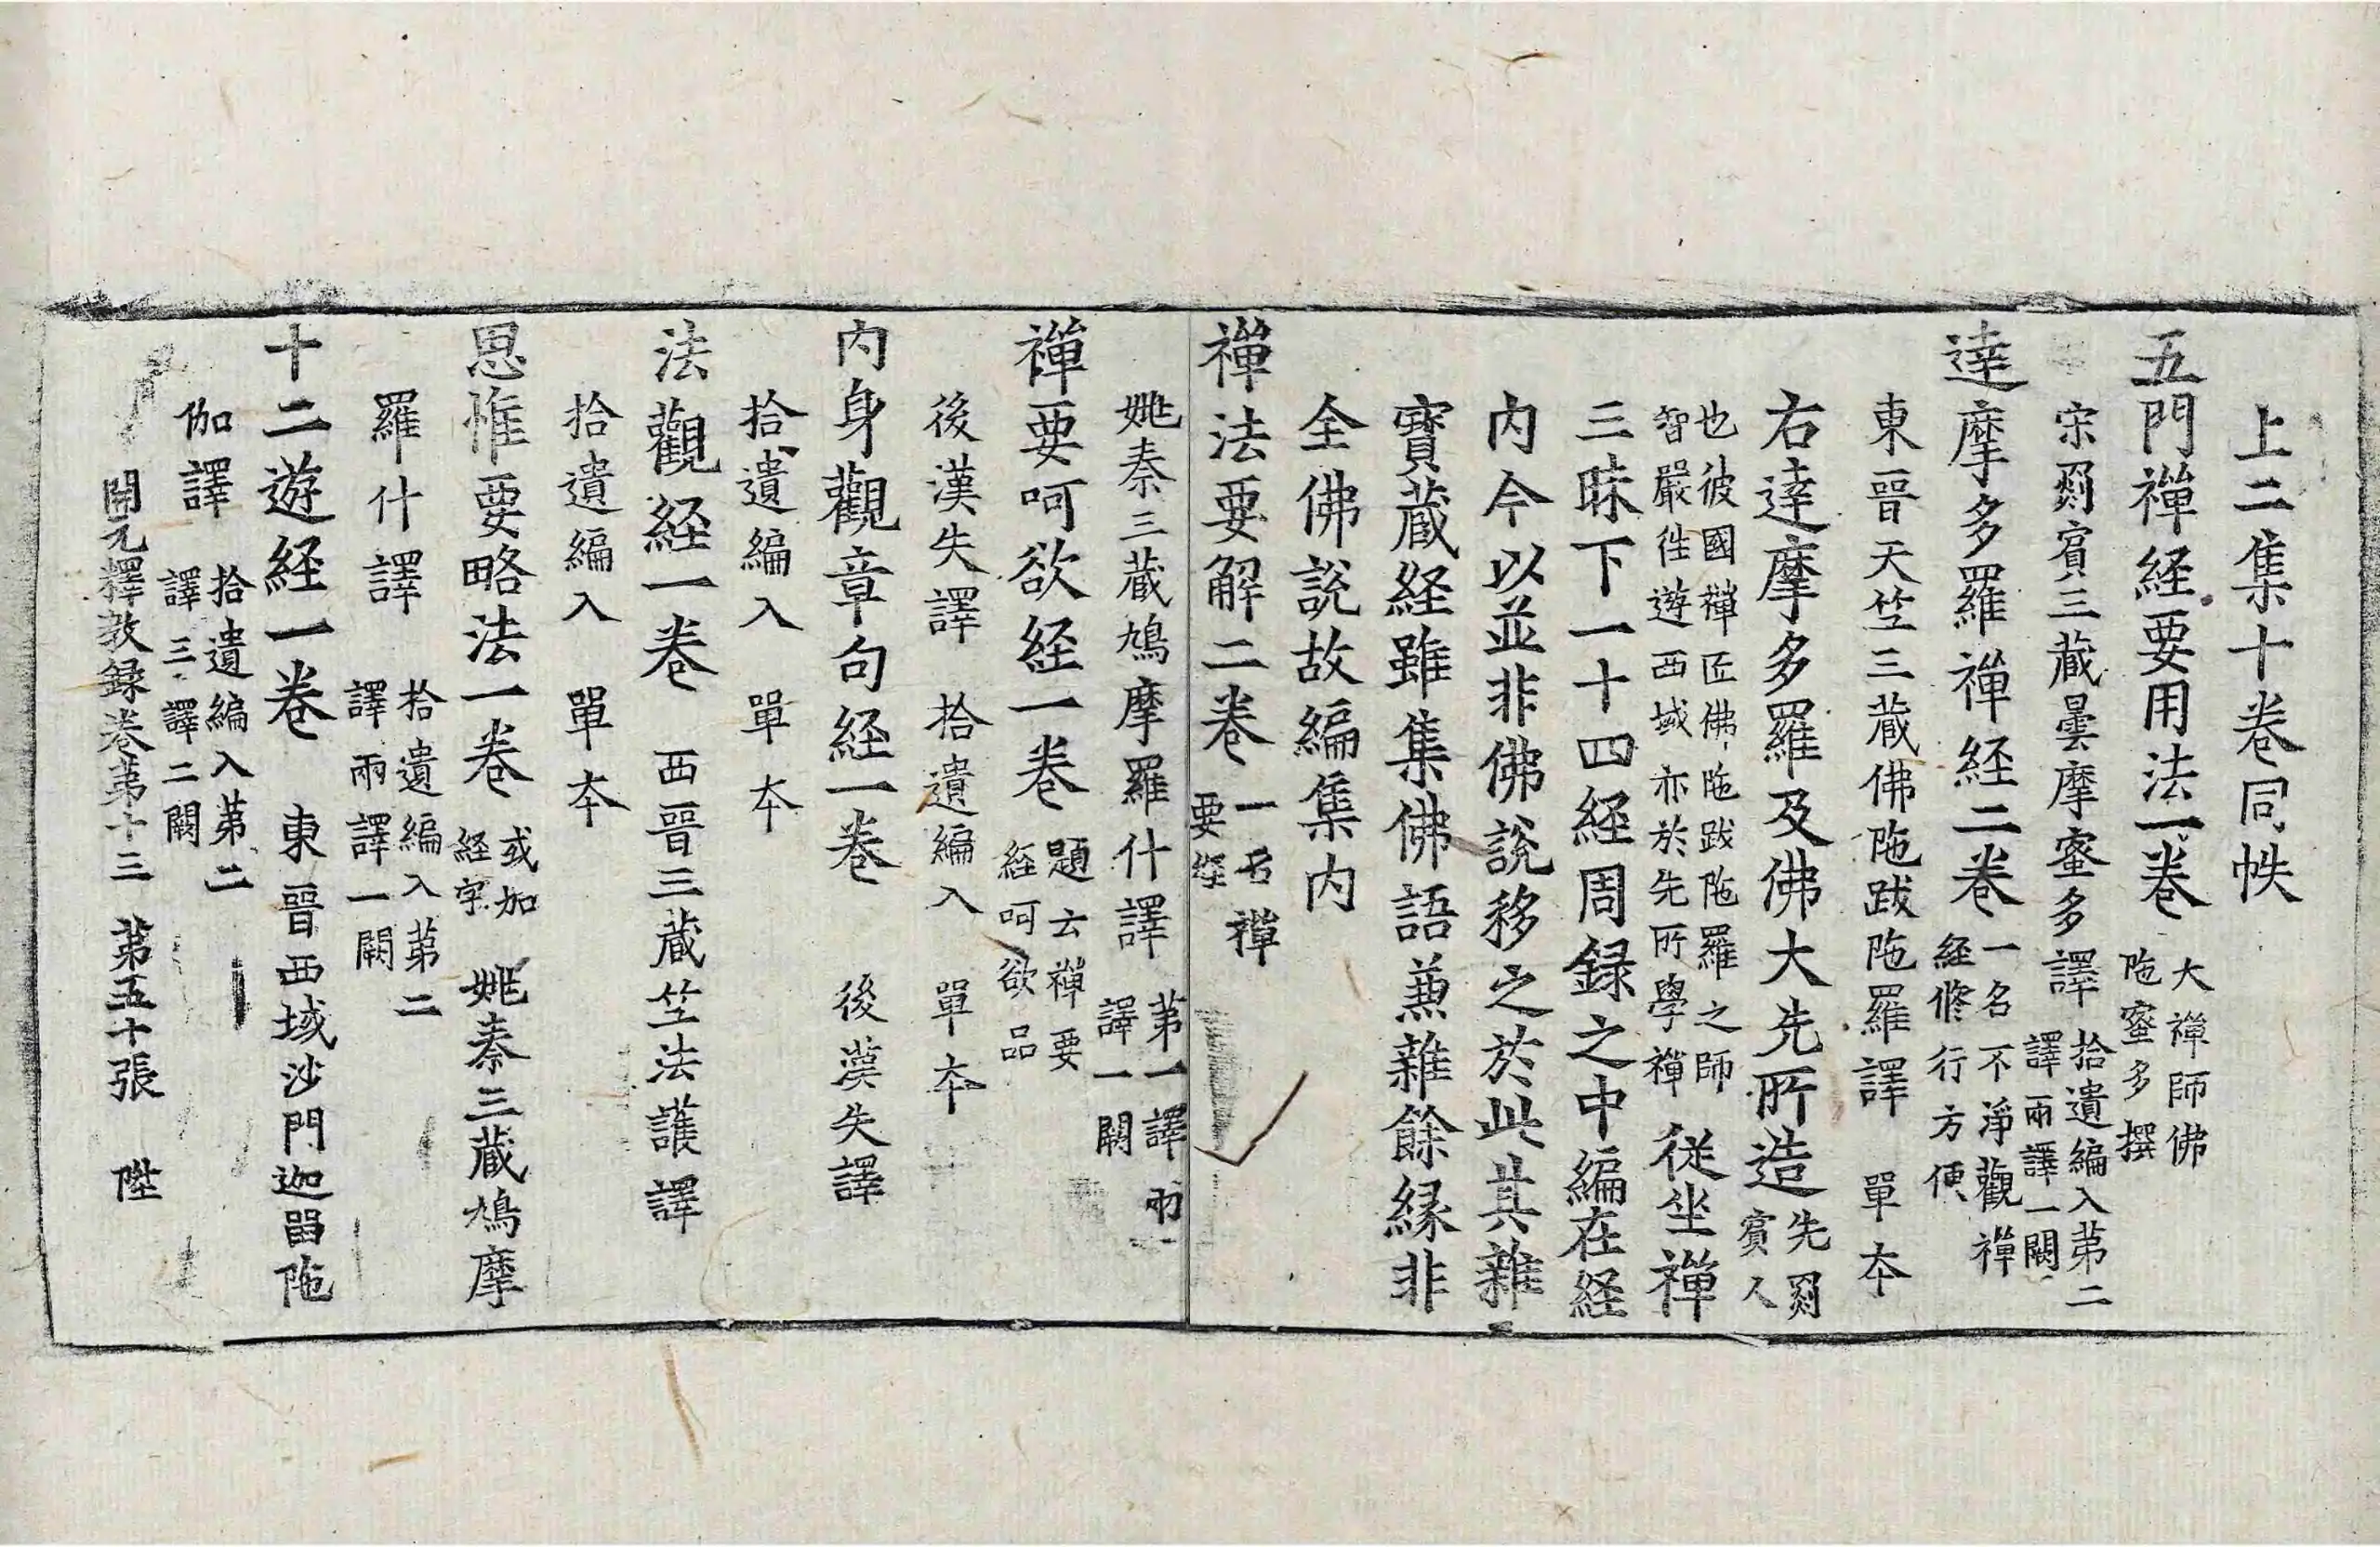 上二集十卷同帙
五門禪経要用法一卷 大禪師佛陁蜜多撰
宋罽賓三藏曇摩蜜多譯 拾遺編入苐二譯兩譯一闕
達摩多羅禪経二卷 一名不淨觀禪経修行方便
東晉天竺三藏佛陁跋陁羅譯 單本
右達摩多羅及佛大先所造 先罽賓人
也彼國禪匠佛陁跋陁羅之師智嚴徃遊西域亦於先所學禪 從坐禪
三昧下一十四経周録之中編在経
内今以並非佛說移之於此其雜
寶藏経雖集佛語兼雜餘縁非
全佛說故編集内
禪法要解二卷 一名禪要経
姚秦三藏鳩摩羅什譯 苐一譯兩譯一闕
禪要呵欲経一卷 題云禪要経呵欲品
後漢失譯 拾遺編入 單本
内身觀章句経一卷 後漢失譯
拾遺編入 單本
法觀経一卷 西晉三藏竺法護譯
拾遺編入 單本
思惟要略法一卷 或加経字 姚秦三藏鳩摩
羅什譯 拾遺編入苐二譯兩譯一闕
十二遊経一卷 東晉西域沙門迦留陁
伽譯 拾遺編入苐二譯三譯二闕
開元釋教録卷苐十三 苐五十張 陞